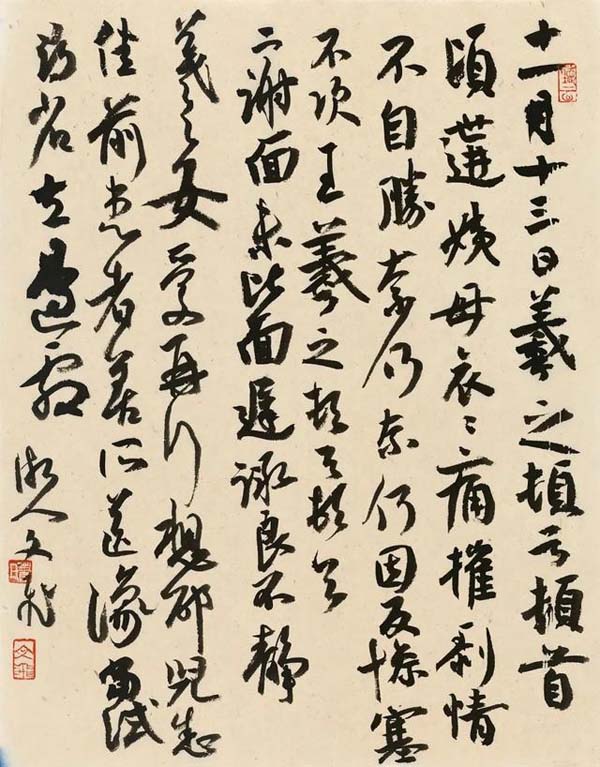 十一月十三日羲之頓首頓首
頃遘姨母哀哀痛摧剝情
不自勝奈何奈何因反慘塞
不次王羲之頓首頓首
二謝面未比面遲詠良不靜
羲之女愛再拜想邵兒悉
佳前患者善所送議當試
尋省左邊劇 湘人文飛